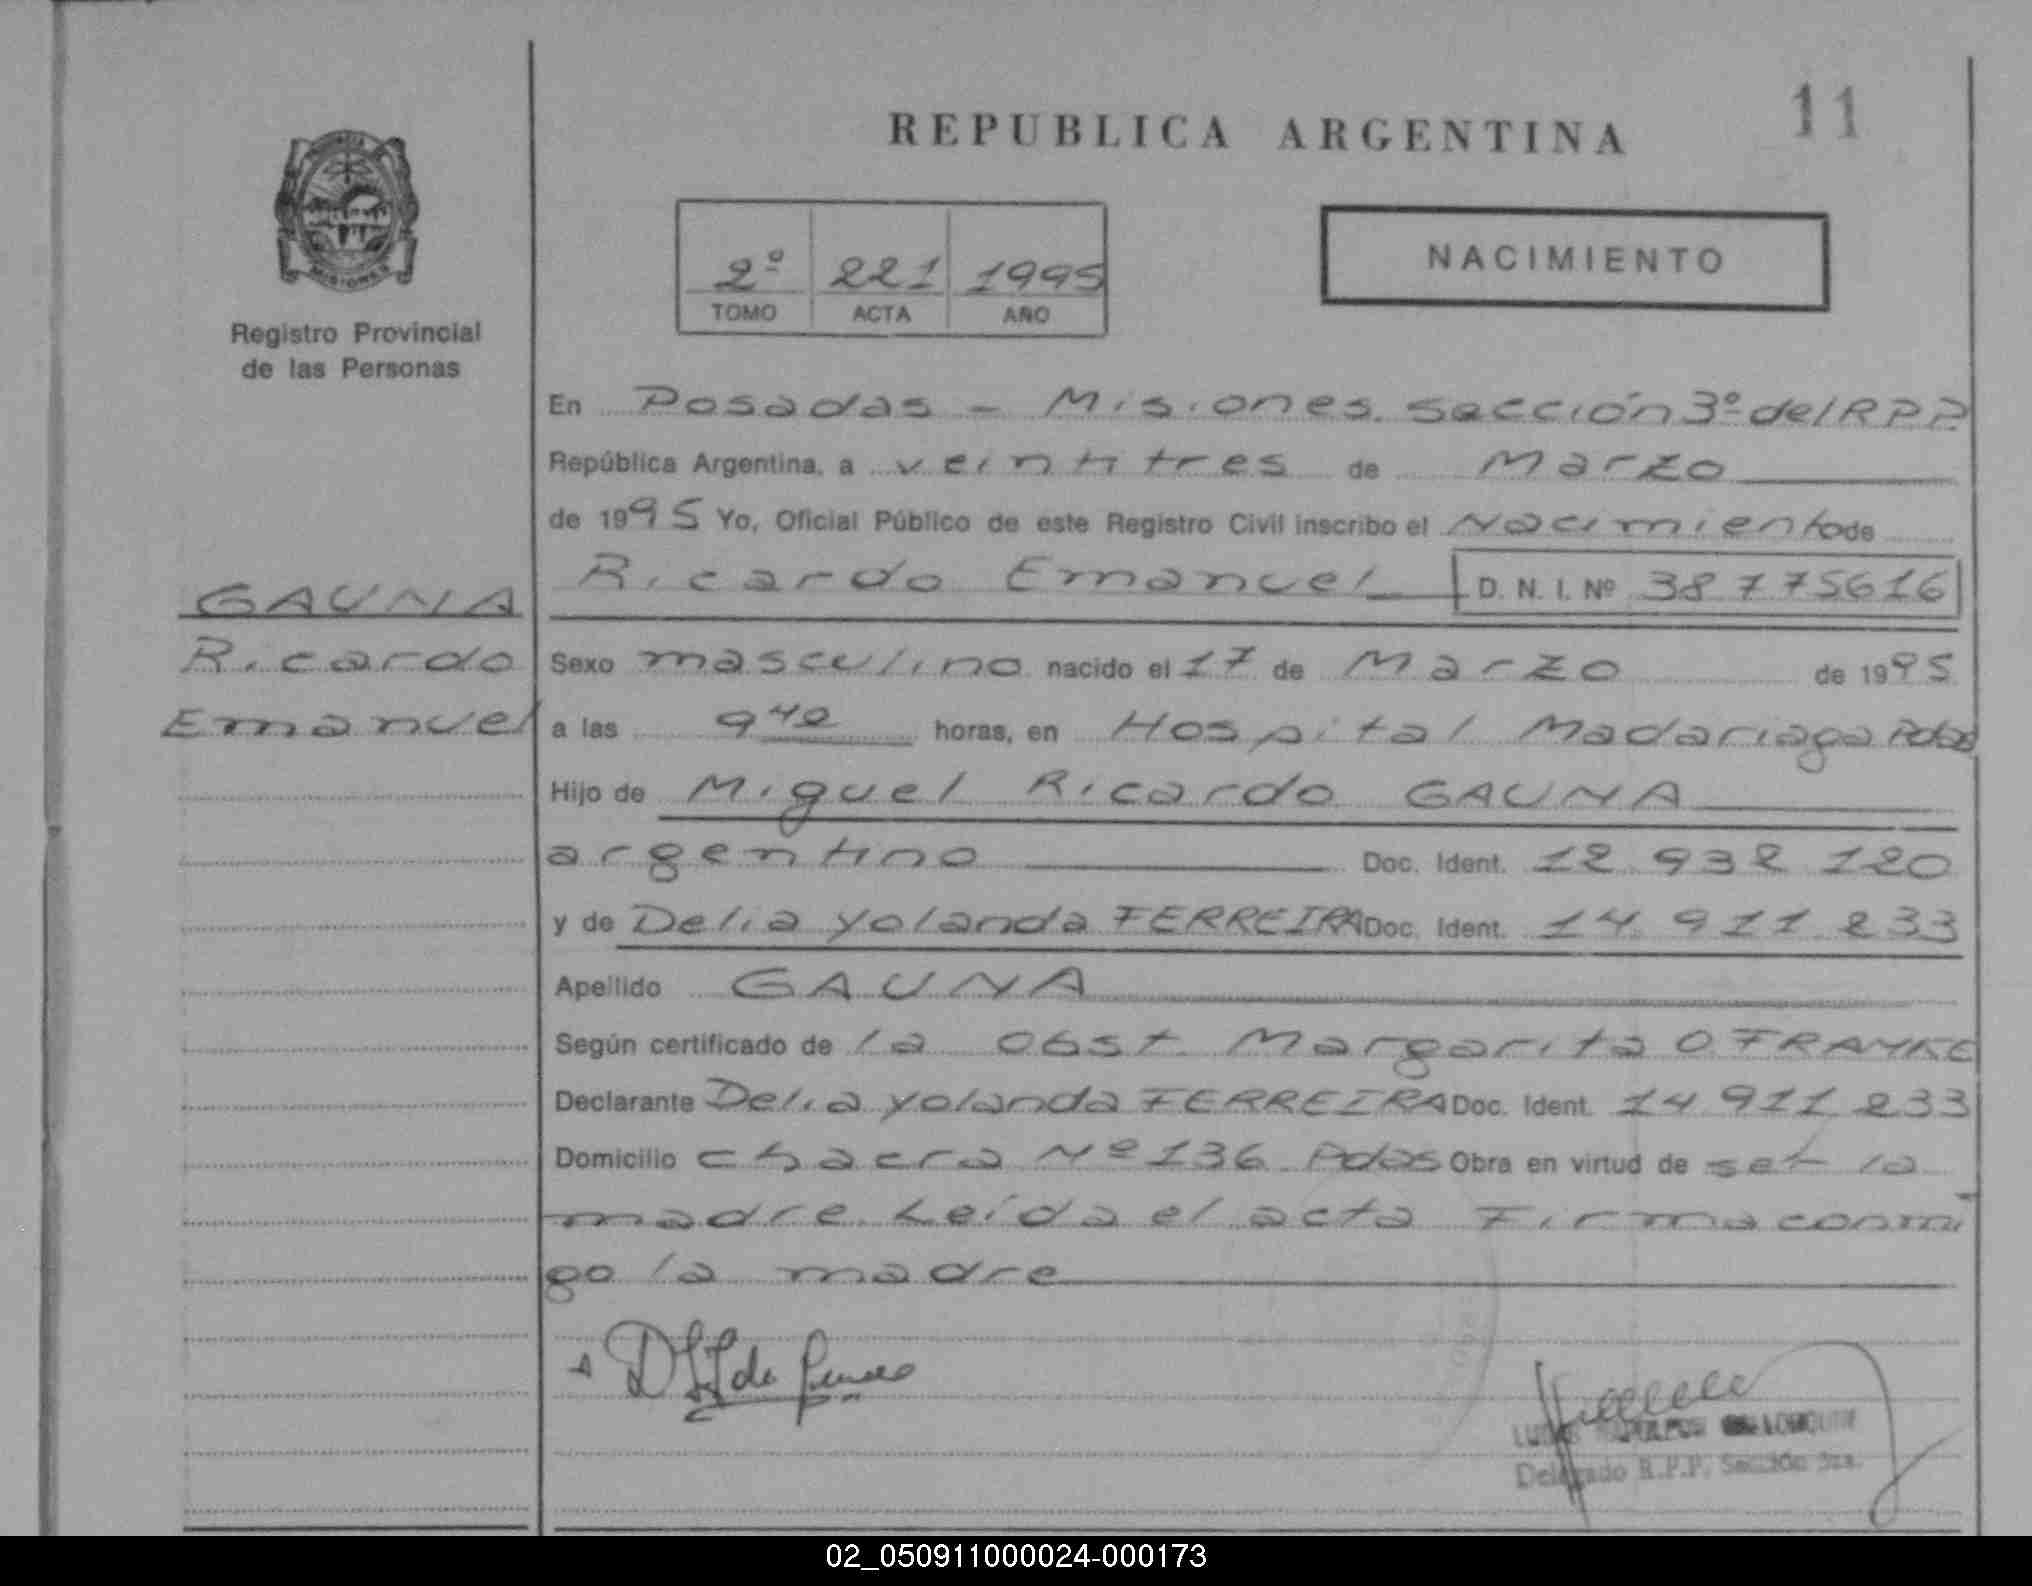 REPUBLICA ARGENTINA
11
MISIONES
Registro Provincial
de las Personas
2º 221 1995
TOMO ACTA AÑO
NACIMIENTO
GAUNA
Ricardo
Emanuel
En Posadas - Misiones. Sección 3º del R.P.P.
República Argentina, a veintitres de Marzo
de 1995 Yo, Oficial Público de este Registro Civil inscribo el Nacimiento de
Ricardo Emanuel D. N. I. Nº 38775616
Sexo masculino nacido el 17 de Marzo de 1995
a las 9 40 horas, en Hospital Madariaga Pdas
Hijo de Miguel Ricardo GAUNA
argentino Doc. Ident. 12.932.120
y de Delia Yolanda FERREIRA Doc. Ident. 14.911.233
Apellido GAUNA
Según certificado de la Obst. Margarita O.
Declarante Delia Yolanda FERREIRA Doc. Ident. 14.911.233
Domicilio chacra Nº 136 Pdas Obra en virtud de ser la
madre. Leída el acta Firma conmi
go la madre
Delegado R.P.P. Sección 3ra.
02_050911000024-000173